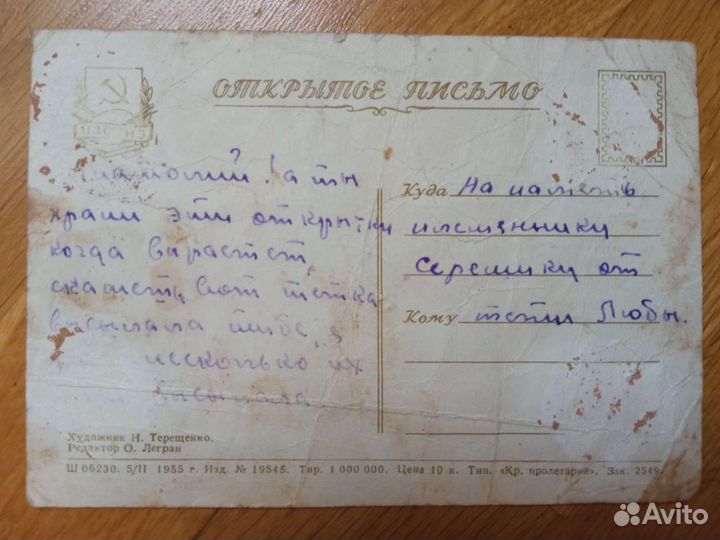 ИЗОГИЗ
ОТКРЫТОЕ ПИСЬМО
Анатолий! а ты
храни эти открытки
когда варастет,
скажеть вот тетка
высылала тибе, я
несколько их
высылала
Куда На память
племяннику
Серешику от
Кому тети Любы.
Художник Н. Терещенко.
Редактор О. Легран
Ш 06230. 5/II 1955 г. Изд. № 19545. Тир. 1 000 000. Цена 10 к. Тип. «Кр. пролетарий», Зак. 2549.
Avito